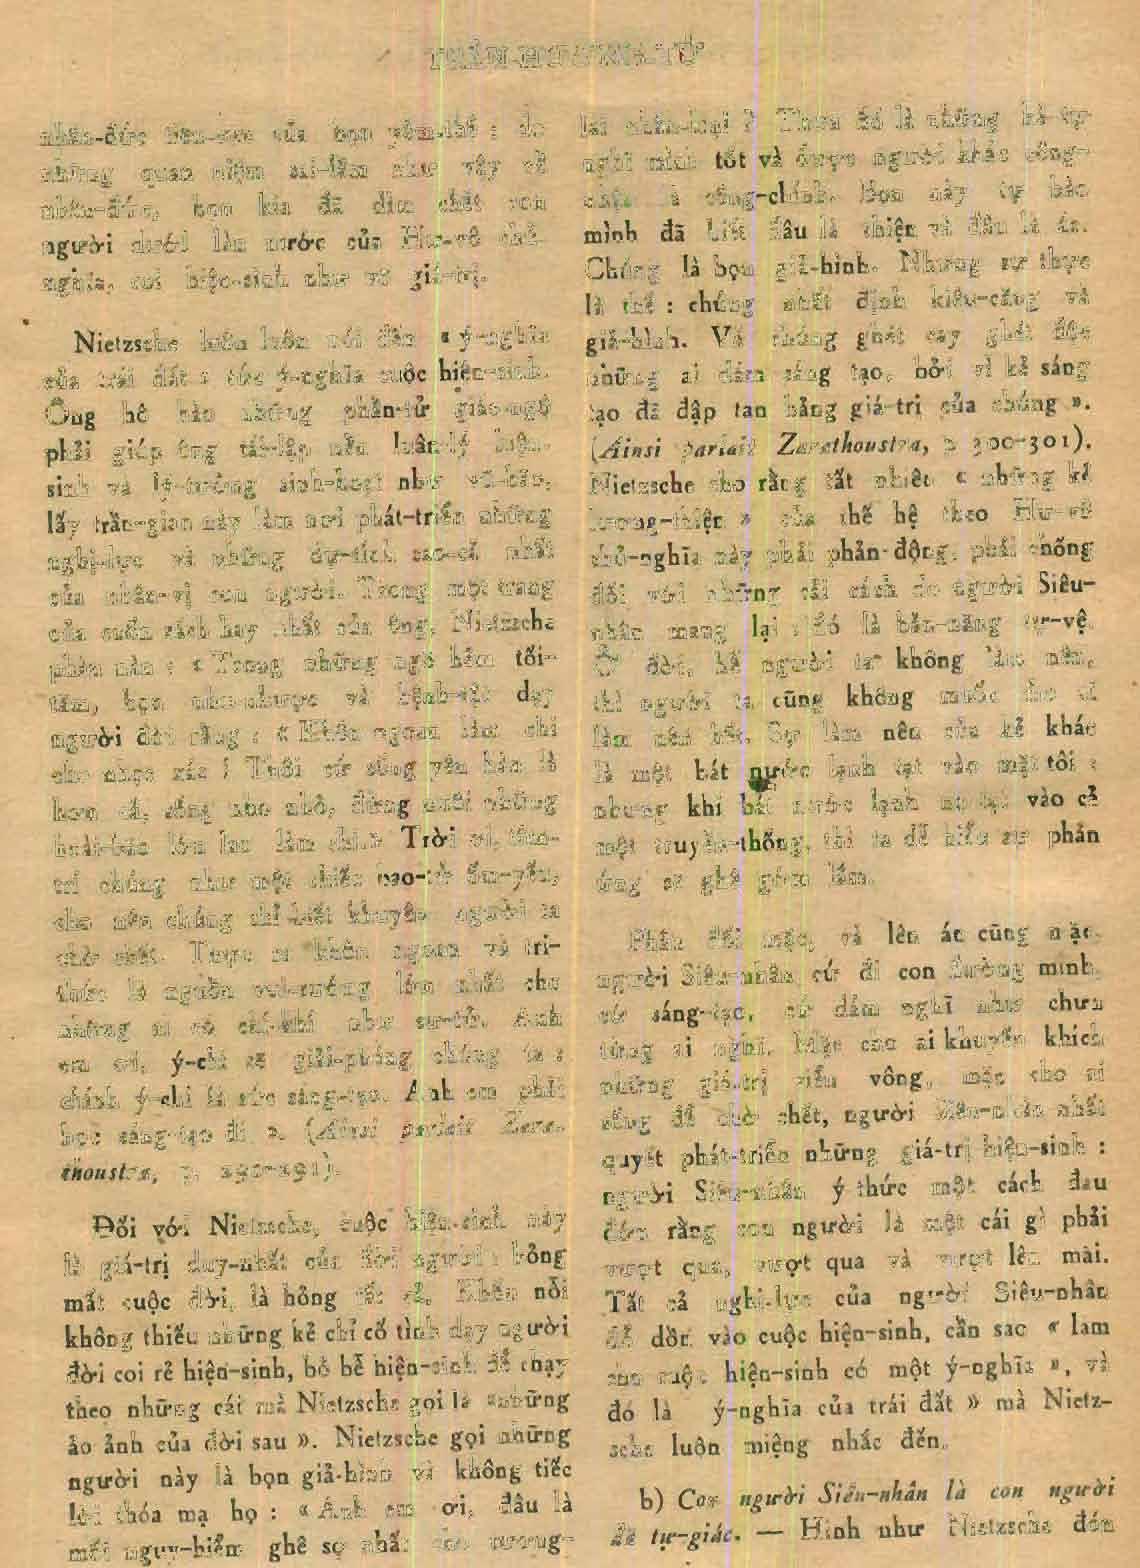 TRẦN-HƯƠNG-TỬ
nhân-đức tiêu-cực của bọn yếm-thế : do
những quan niệm sai-lầm như vậy về
nhân-đức, bọn kia đã dìm chết con
người dưới làn nước của Hư-vô chủ-
nghĩa, coi hiện-sinh như vô giá-trị.
Nietzsche luôn luôn nói đến « ý-nghĩa
của trái đất » tức ý-nghĩa cuộc hiện-sinh.
Ông hô hào những phần-tử giác-ngộ
phải giúp ông tái-lập nền luân-lý hiện-
sinh và lý-tưởng sinh-hoạt như vũ-bão,
lấy trần-gian này làm nơi phát-triển những
nghị-lực và những dự-tích cao-cả nhất
của nhân-vị con người. Trong một trang
của cuốn sách hay nhất của ông, Nietzsche
phàn nàn : « Trong những ngõ hẻm tối-
tăm, bọn nhu-nhược và bệnh-tật dạy
người đời rằng : « Khôn ngoan làm chi
cho nhọc xác ! Thôi cứ sống yên hàn là
hơn cả, sống nho nhỏ, đừng nuôi những
hoài-bão lớn lao làm chi.» Trời ơi, tâm-
trí chúng như một chiếc bao-tử ốm-yếu,
cho nên chúng chỉ biết khuyên người ta
chờ chết. Thực ra khôn ngoan và tri-
thức là nguồn vui-sướng lớn nhất cho
những ai có chí-khí như sư-tử. Anh
em ơi, ý-chí sẽ giải-phóng chúng ta :
chính ý-chí là sức sáng-tạo. Anh em phải
học sáng-tạo đi ». (Ainsi parlait Zara-
thoustra, p. 290-291).
Đối với Nietzsche, cuộc hiện-sinh này
là giá-trị duy-nhất của đời người : hỏng
mất cuộc đời, là hỏng tất cả. Khốn nỗi
không thiếu những kẻ chỉ cố tình dạy người
đời coi rẻ hiện-sinh, bỏ bễ hiện-sinh để chạy
theo những cái mà Nietzsche gọi là «những
ảo ảnh của đời sau ». Nietzsche gọi những
người này là bọn giả-hình và không tiếc
lời thóa mạ họ : « Anh em ơi, đâu là
mối nguy-hiểm ghê sợ nhất cho tương-
lai nhân-loại ? Thưa đó là những kẻ tự
nghĩ mình tốt và được người khác công-
nhận là công-chính. Bọn này tự hào
mình đã biết đâu là thiện và đâu là ác.
Chúng là bọn giả-hình. Nhưng sự thực
là thế : chúng nhất định kiêu-căng và
giả-hình. Và chúng ghét cay ghét độc
những ai dám sáng tạo, bởi vì kẻ sáng
tạo đã đập tan bảng giá-trị của chúng ».
(Ainsi parlait Zarathoustra, p 300-301).
Nietzsche cho rằng tất nhiên « những kẻ
lương-thiện » của thế hệ theo Hư-vô
chủ-nghĩa này phải phản-động, phải chống
đối với những cải cách do người Siêu-
nhân mang lại : đó là bản-năng tự-vệ.
Ở đời, hễ người ta không làm nên,
thì người ta cũng không muốn cho ai
làm nên hết. Sự làm nên của kẻ khác
là một bát nước lạnh tạt vào mặt tôi :
nhưng khi bát nước lạnh nọ tạt vào cả
một truyền-thống, thì ta dễ hiểu sự phản
ứng sẽ ghê gớm lắm.
Phản đối mặc, và lên án cũng mặc,
người Siêu-nhân cứ đi con đường mình,
cứ sáng-tạo, cứ dám nghĩ như chưa
từng ai nghĩ. Mặc cho ai khuyến khích
những giá-trị viển vông, mặc cho ai
sống để chờ chết, người Siêu-nhân nhất
quyết phát-triển những giá-trị hiện-sinh :
người Siêu-nhân ý-thức một cách đau
đớn rằng con người là một cái gì phải
vượt qua, vượt qua và vượt lên mãi.
Tất cả nghị-lực của người Siêu-nhân
để dồn vào cuộc hiện-sinh, cần sao « làm
cho cuộc hiện-sinh có một ý-nghĩa », và
đó là ý-nghĩa của trái đất » mà Nietz-
sche luôn miệng nhắc đến.
b) Con người Siêu-nhân là con người
đã tự-giác. — Hình như Nietzsche đón